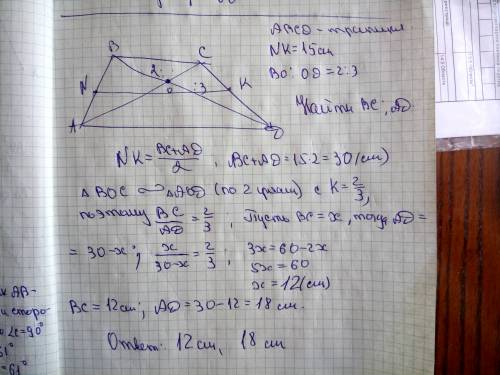 ABCD - трапеция.
NK = 15 см
BO : OD = 2:3
Найти BC; AD.
B
C
2:
N
O
:3
K
A
D
NK = BC+AD / 2 , BC+AD = 15·2 = 30 (см)
△ BOC ∾ △AOD (по 2 углам) с K = 2/3,
поэтому BC/AD = 2/3; Пусть BC = x, тогда AD =
= 30-x; x/30-x = 2/3; 3x = 60-2x
5x = 60
x = 12 (см)
BC = 12 см; AD = 30-12 = 18 см.
Ответ: 12 см, 18 см
AB-
сторо-
c=90°
61°
=61°